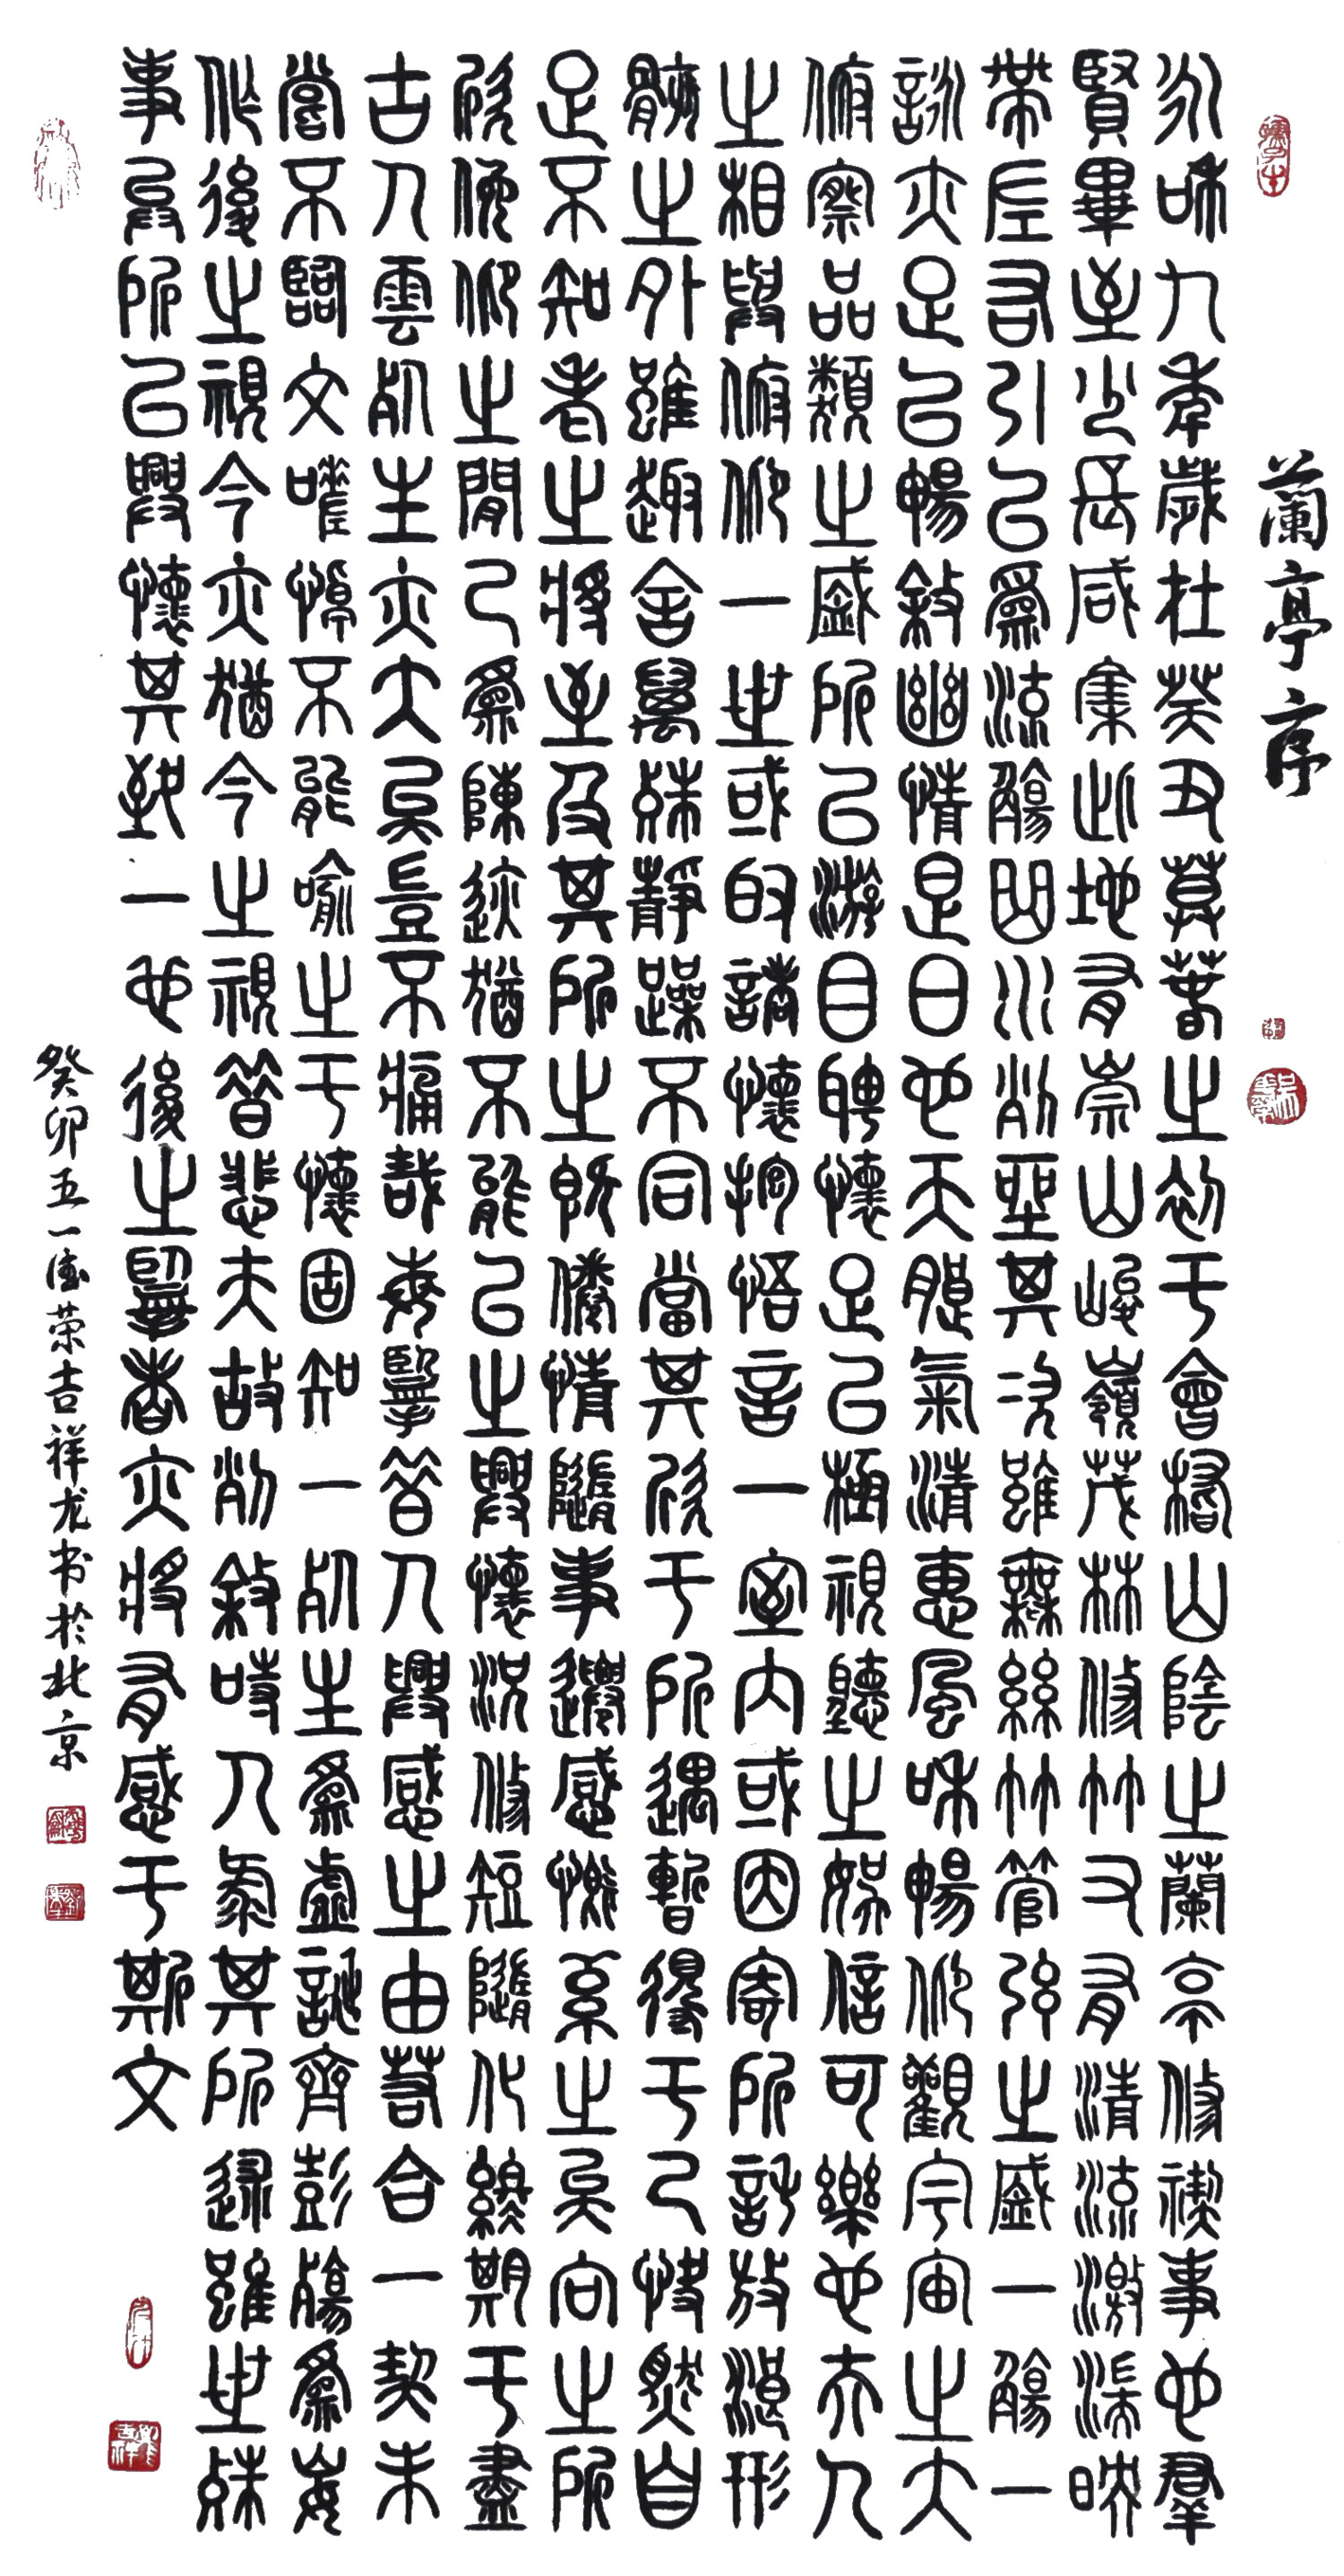 蘭亭序
永和九年歲在癸丑暮春之初于會稽山陰之蘭亭修禊事也羣
賢畢至少長咸集此地有崇山峻嶺茂林修竹又有清流激湍映
帶左右引以為流觴曲水列坐其次雖無絲竹管弦之盛一觴一
詠亦足以暢敘幽情是日也天朗氣清惠風和暢仰觀宇宙之大
俯察品類之盛所以游目騁懷足以極視聽之娛信可樂也夫人
之相與俯仰一世或取諸懷抱悟言一室內或因寄所託放浪形
骸之外雖趣舍萬殊靜躁不同當其欣于所遇暫得于己快然自
足不知老之將至及其所之既倦情隨事遷感慨系之矣向之所
欣俛仰之閒已為陳迹猶不能以之興懷況修短隨化終期于盡
古人雲死生亦大矣豈不痛哉每攬昔人興感之由若合一契未
嘗不臨文嗟悼不能喻之于懷固知一死生為虛誕齊彭殤為妄
作後之視今亦猶今之視昔悲夫故列敘時人录其所述雖世殊
事異所以興懷其致一也後之攬者亦將有感于斯文
癸卯五一德荣吉祥龙书於北京